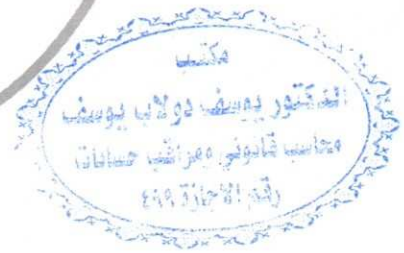 مكتب
الدكتور يوسف دولاب يوسف
محاسب قانوني ومراقب حسابات
رقم الاجازة ٤٦٩